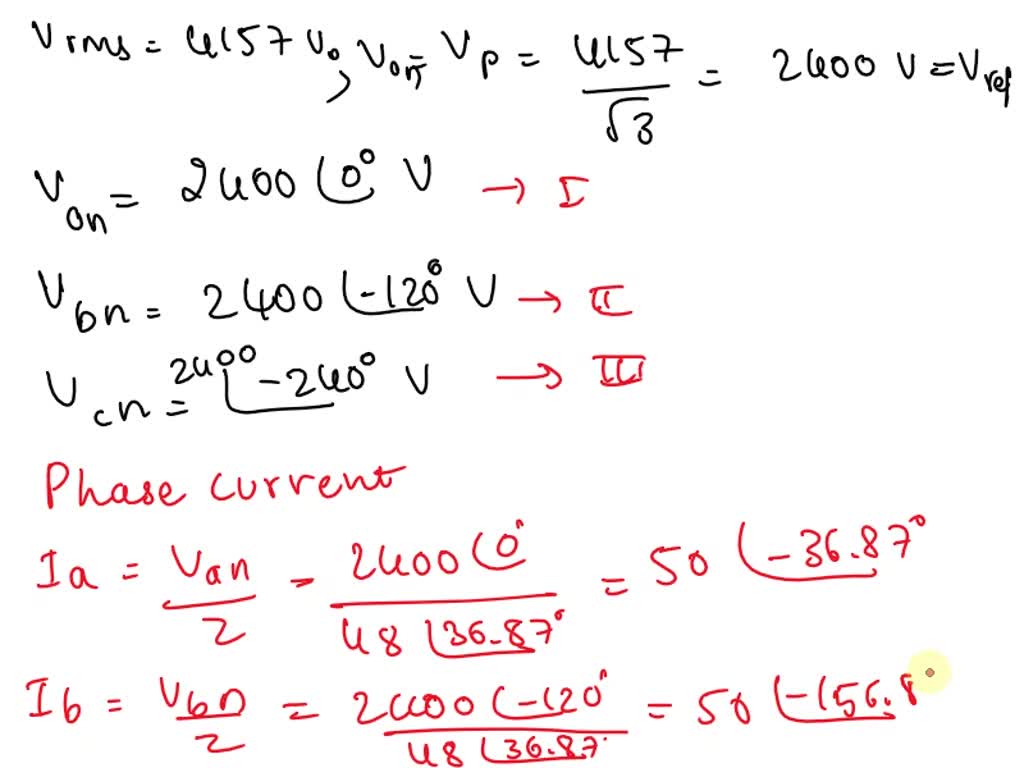 Vrms = 4157 V, Van = Vp = 4157/√3 = 2400 V = Vref
Van = 2400 ∠0° V → I
Vbn = 2400 ∠-120° V → II
Vcn = 2400 ∠-240° V → III
Phase current
Ia = Van/Z = 2400 ∠0°/48 ∠36.87° = 50 ∠-36.87°
Ib = Vbn/Z = 2400 ∠-120°/48 ∠36.87° = 50 ∠-156.8